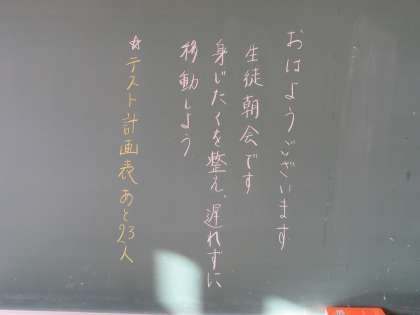 おはようございます
生徒朝会です
身じたくを整え、遅れずに
移動しよう
☆テスト計画表あと23人